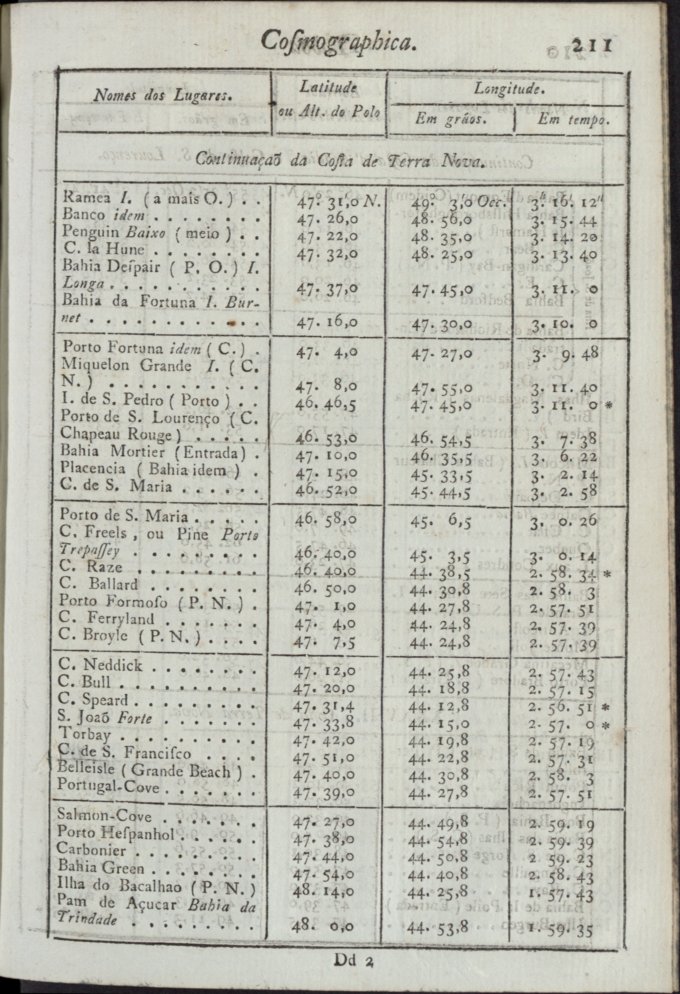 Coſmographica. 211
Nomes dos Lugares. Latitude ou Alt. do Polo Longitude. Em gráos. Em tempo.
Continuaçaõ da Coſta de Terra Nova.
Ramea I. ( a mais O. ) . . 47. 31,0 N. 49. 3,0 Occ. 3. 16. 12
Banco idem . . . . . . . . 47. 26,0 48. 56,0 3. 15. 44
Penguin Baixo ( meio ) . . 47. 22,0 48. 35,0 3. 14. 20
C. la Hune . . . . . . . . 47. 32,0 48. 25,0 3. 13. 40
Bahia Deſpair ( P. O. ) I.
Longa . . . . . . . . . . . 47. 37,0 47. 45,0 3. 11. 0
Bahia da Fortuna I. Bur-
net . . . . . . . . . . . . 47. 16,0 47. 30,0 3. 10. 0
Porto Fortuna idem ( C. ) . 47. 4,0 47. 27,0 3. 9. 48
Miquelon Grande I. ( C.
N. ) . . . . . . . . . . . 47. 8,0 47. 55,0 3. 11. 40
I. de S. Pedro ( Porto ) . . 46. 46,5 47. 45,0 3. 11. 0 *
Porto de S. Lourenço ( C.
Chapeau Rouge ) . . . . . 46. 53,0 46. 54,5 3. 7. 38
Bahia Mortier ( Entrada ) . 47. 10,0 46. 35,5 3. 6. 22
Placencia ( Bahia idem ) . 47. 15,0 45. 33,5 3. 2. 14
C. de S. Maria . . . . . . 46. 52,0 45. 44,5 3. 2. 58
Porto de S. Maria . . . . . 46. 58,0 45. 6,5 3. 0. 26
C. Freels , ou Pine Porto
Trepaſſey . . . . . . . . 46. 40,0 45. 3,5 3. 0. 14
C. Raze . . . . . . . . . 46. 40,0 44. 38,5 2. 58. 34 *
C. Ballard . . . . . . . . 46. 50,0 44. 30,8 2. 58. 3
Porto Formoſo ( P. N. ) . 47. 1,0 44. 27,8 2. 57. 51
C. Ferryland . . . . . . . 47. 4,0 44. 24,8 2. 57. 39
C. Broyle ( P. N. ) . . . . 47. 7,5 44. 24,8 2. 57. 39
C. Neddick . . . . . . . . 47. 12,0 44. 25,8 2. 57. 43
C. Bull . . . . . . . . . . 47. 20,0 44. 18,8 2. 57. 15
C. Speard . . . . . . . . . 47. 31,4 44. 12,8 2. 56. 51 *
S. Joaõ Forte . . . . . . . 47. 33,8 44. 15,0 2. 57. 0 *
Torbay . . . . . . . . . . 47. 42,0 44. 19,8 2. 57. 19
C. de S. Franciſco . . . . 47. 51,0 44. 22,8 2. 57. 31
Belleisle ( Grande Beach ) . 47. 40,0 44. 30,8 2. 58. 3
Portugal-Cove . . . . . . . 47. 39,0 44. 27,8 2. 57. 51
Salmon-Cove . . . . . . . 47. 27,0 44. 49,8 2. 59. 19
Porto Heſpanhol . . . . . . 47. 38,0 44. 54,8 2. 59. 39
Carbonier . . . . . . . . . 47. 44,0 44. 50,8 2. 59. 23
Bahia Green . . . . . . . . 47. 54,0 44. 40,8 2. 58. 43
Ilha do Bacalhao ( P. N. ) 48. 14,0 44. 25,8 1. 57. 43
Pam de Açucar Bahia da
Trindade . . . . . . . . . 48. 0,0 44. 53,8 1. 59. 35
Dd 2